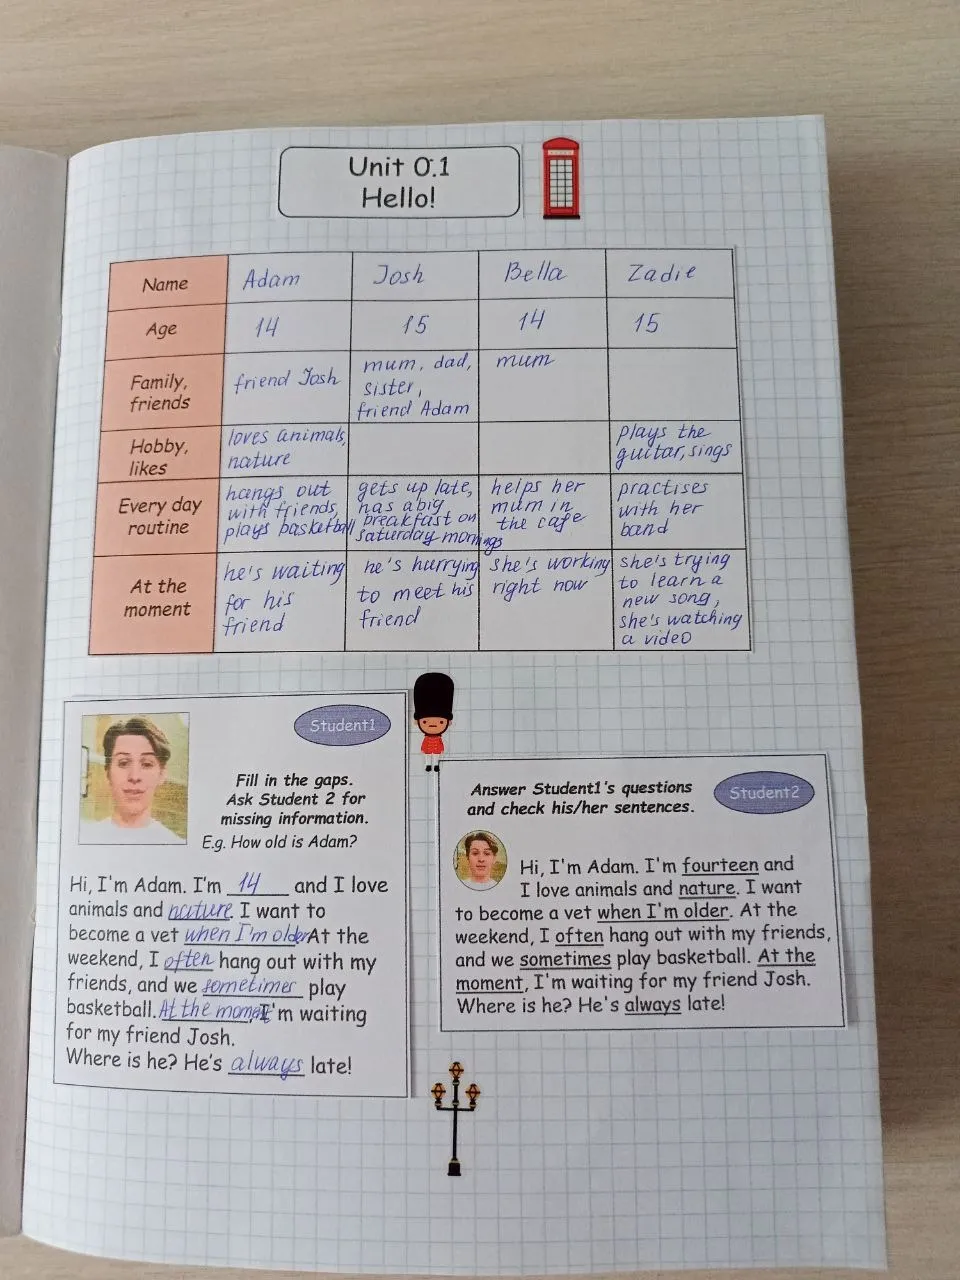 Unit 0.1
Hello!
Name Adam Josh Bella Zadie
Age 14 15 14 15
Family,
friends
friend Josh
mum, dad,
sister,
friend Adam
mum
Hobby,
likes
loves animals,
nature
plays the
guitar, sings
Every day
routine
hangs out
with friends,
plays basketball
gets up late,
has a big
breakfast on
saturday mornings
helps her
mum in
the cafe
practises
with her
band
At the
moment
he's waiting
for his
friend
he's hurrying
to meet his
friend
she's working
right now
she's trying
to learn a
new song,
she's watching
a video
Student1
Fill in the gaps.
Ask Student 2 for
missing information.
E.g. How old is Adam?
Hi, I'm Adam. I'm 14 and I love
animals and nature. I want to
become a vet when I'm older At the
weekend, I often hang out with my
friends, and we sometimes play
basketball. At the moment, I'm waiting
for my friend Josh.
Where is he? He's always late!
Answer Student1's questions
and check his/her sentences.
Student2
Hi, I'm Adam. I'm fourteen and
I love animals and nature. I want
to become a vet when I'm older. At the
weekend, I often hang out with my friends,
and we sometimes play basketball. At the
moment, I'm waiting for my friend Josh.
Where is he? He's always late!